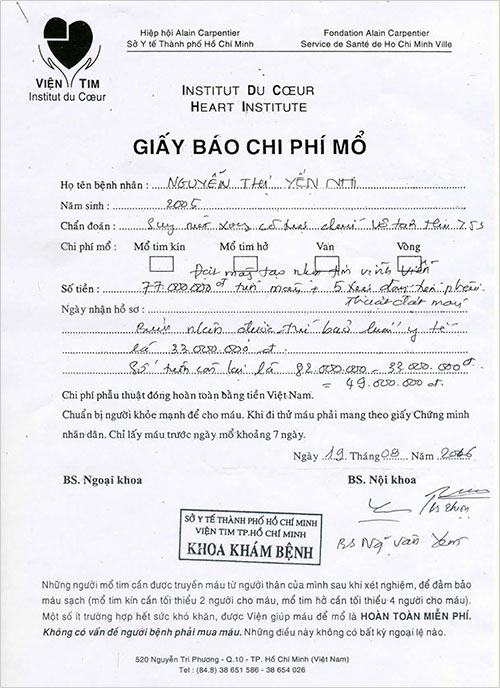 Hiệp hội Alain Carpentier
Sở Y tế Thành phố Hồ Chí Minh
Fondation Alain Carpentier
Service de Santé de Ho Chi Minh Ville
VIỆN TIM
Institut du Cœur
INSTITUT DU CŒUR
HEART INSTITUTE
GIẤY BÁO CHI PHÍ MỔ
Họ tên bệnh nhân : NGUYỄN THỊ YẾN NHI
Năm sinh : 2005
Chẩn đoán : Suy nút xoang
Chi phí mổ : Mổ tim kín Mổ tim hở Van Vòng
Đặt máy tạo nhịp tim vĩnh viễn
Số tiền : 77.000.000đ tiền máy + 5
Thuật đặt máy
Ngày nhận hồ sơ :
Bệnh nhân được bảo y tế
là 33.000.000 đ.
Số tiền còn lại là 82.000.000 - 33.000.000đ
= 49.000.000 đ.
Chi phí phẫu thuật đóng hoàn toàn bằng tiền Việt Nam.
Chuẩn bị người khỏe mạnh để cho máu. Khi đi thử máu phải mang theo giấy Chứng minh
nhân dân. Chỉ lấy máu trước ngày mổ khoảng 7 ngày.
Ngày 19 Tháng 08 Năm 2016
BS. Ngoại khoa
BS. Nội khoa
SỞ Y TẾ THÀNH PHỐ HỒ CHÍ MINH
VIỆN TIM TP.HỒ CHÍ MINH
KHOA KHÁM BỆNH
Những người mổ tim cần được truyền máu từ người thân của mình sau khi xét nghiệm, để đảm bảo
máu sạch (mổ tim kín cần tối thiểu 2 người cho máu, mổ tim hở cần tối thiểu 4 người cho máu).
Một số ít trường hợp hết sức khó khăn, được Viện giúp máu để mổ là HOÀN TOÀN MIỄN PHÍ.
Không có vấn đề người bệnh phải mua máu. Những điều này không có bất kỳ ngoại lệ nào.
520 Nguyễn Tri Phương - Q.10 - TP. Hồ Chí Minh (Việt Nam)
Tel : (84.8) 38 651 586 - 38 654 026